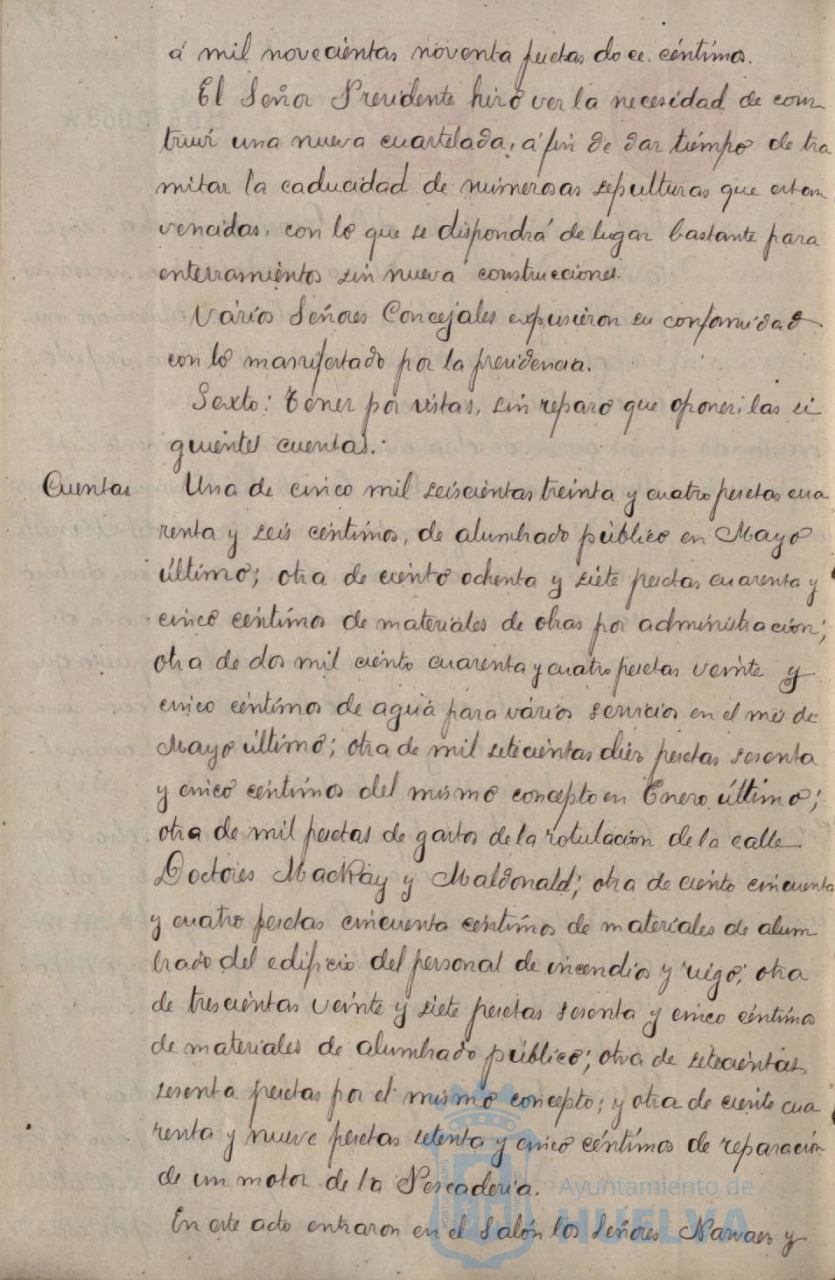 á mil novecientas noventa pesetas doce céntimos.
El Señor Presidente hizo ver la necesidad de cons
truir una nueva cuartelada, á fin de dar tiempo de tra
mitar la caducidad de numerosas sepulturas que estan
vencidas, con lo que se dispondrá de lugar bastante para
enterramientos sin nueva construcciones.
Vários Señores Concejales expusieron su conformidad
con lo manifestado por la presidencia.
Sexto: Tener por vistas, sin reparo que oponer, las si
guientes cuentas.-
Cuentas Una de cinco mil seiscientas treinta y cuatro pesetas cua
renta y seis céntimos, de alumbrado público en Mayo
último; otra de ciento ochenta y siete pesetas cuarenta y
cinco céntimos de materiales de obras por administración;
otra de dos mil ciento cuarenta y cuatro pesetas veinte y
cinco céntimos de agua para vários servicios en el mes de
Mayo último; otra de mil setecientas diez pesetas sesenta
y cinco céntimos del mismo concepto en Enero último;
otra de mil pesetas de gastos de la rotulación de la calle
Doctores MacKay y Maldonald; otra de ciento cincuenta
y cuatro pesetas cincuenta céntimos de materiales de alum
brado del edificio del personal de incendios y riego; otra
de trescientas veinte y siete pesetas sesenta y cinco céntimos
de materiales de alumbrado público; otra de setecientas
sesenta pesetas por el mismo concepto; y otra de ciento cua
renta y nueve pesetas setenta y cinco céntimos de reparación
de un motor de la Pescaderia.
En este acto entraron en el Salón los Señores Narvaez y
Ayuntamiento de
HUELVA